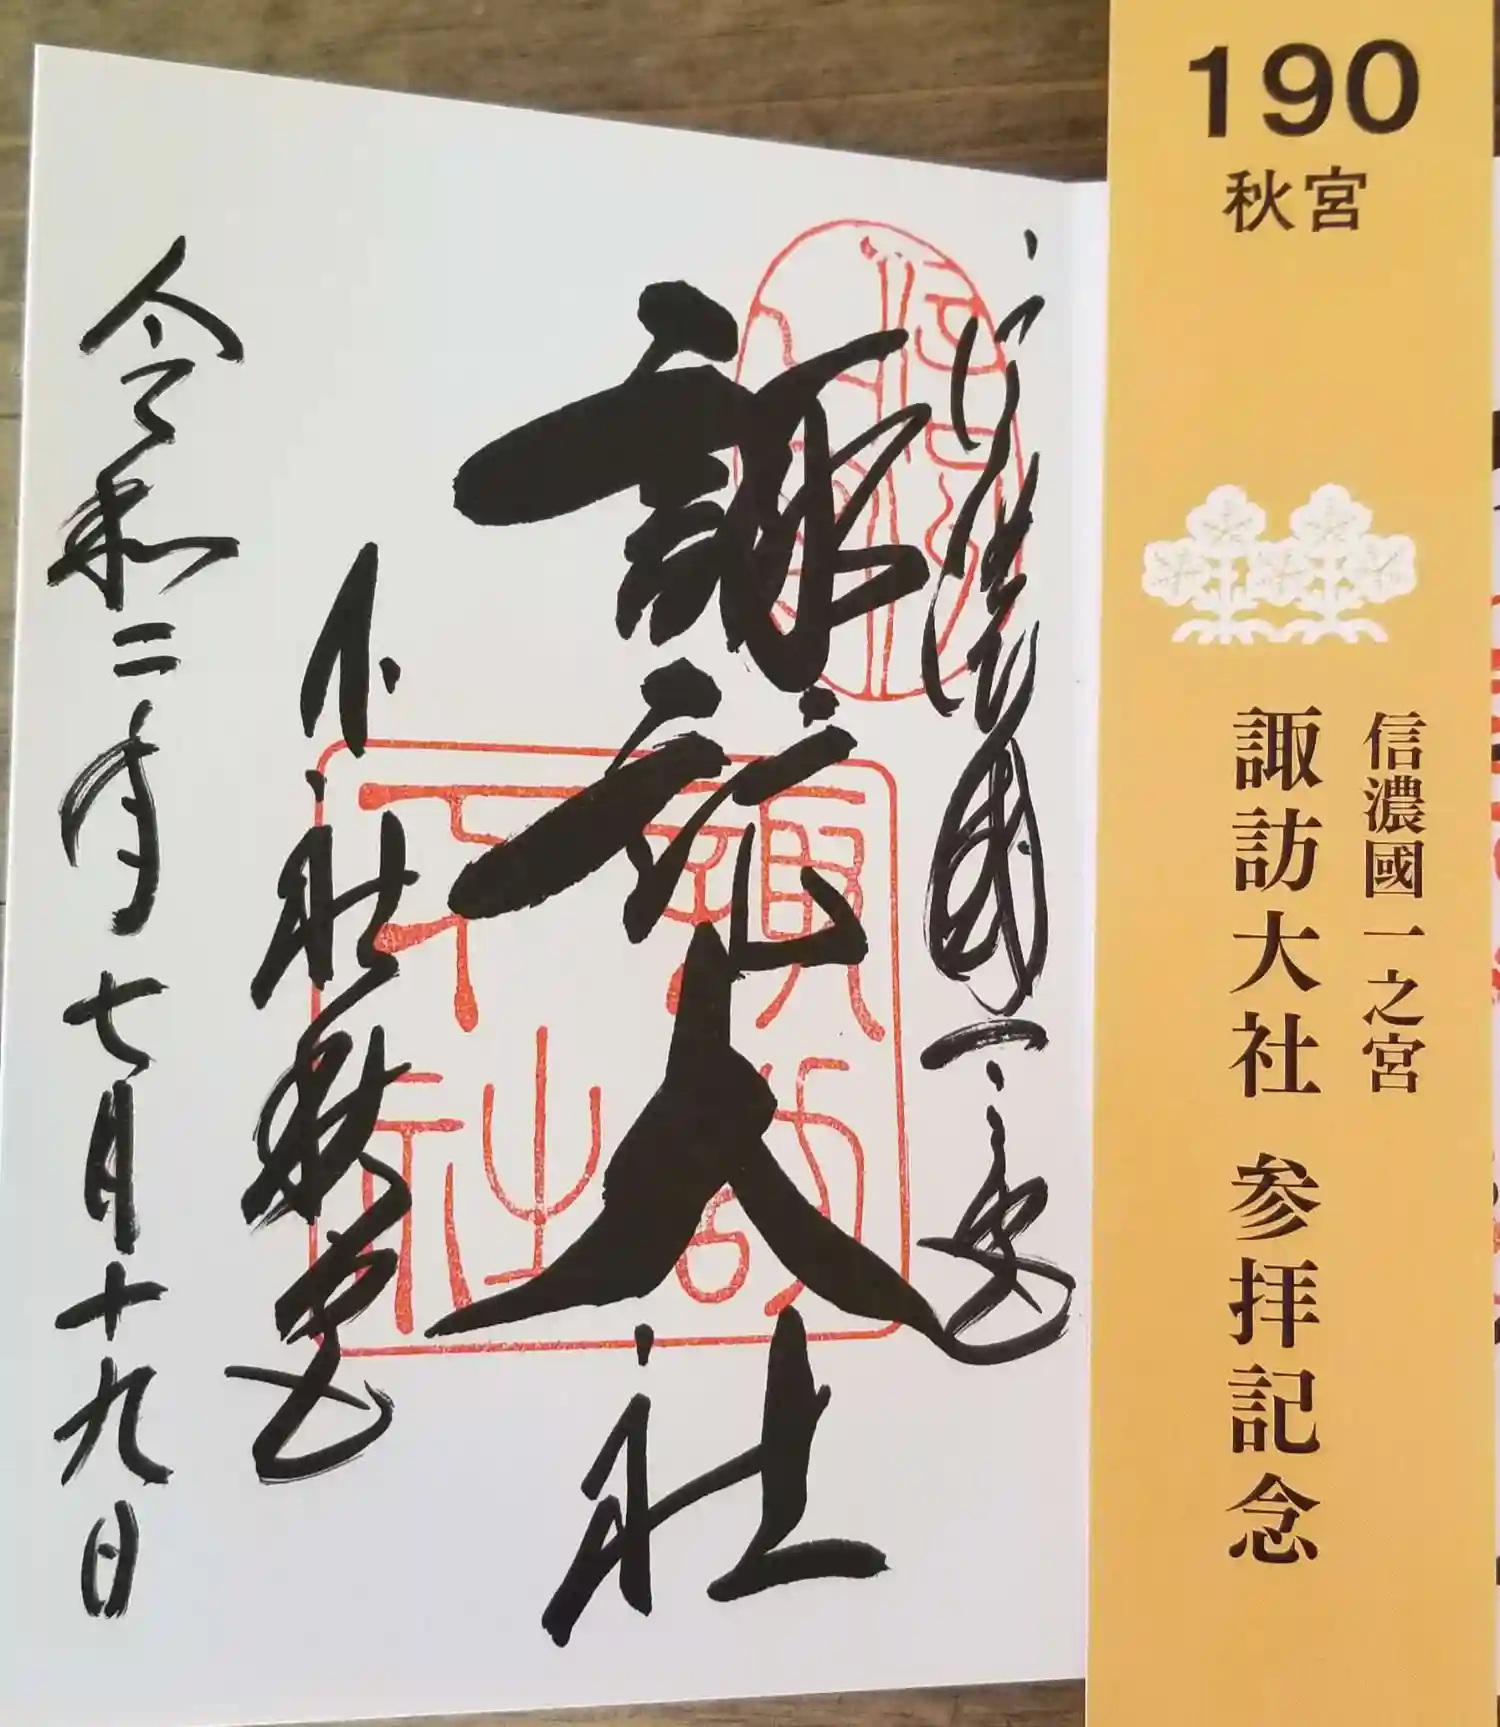 190
秋宮
信濃國一之宮
諏訪大社 参拝記念
信濃國一之宮
諏訪大社
下社秋宮
令和二年七月十九日
諏訪大社下社